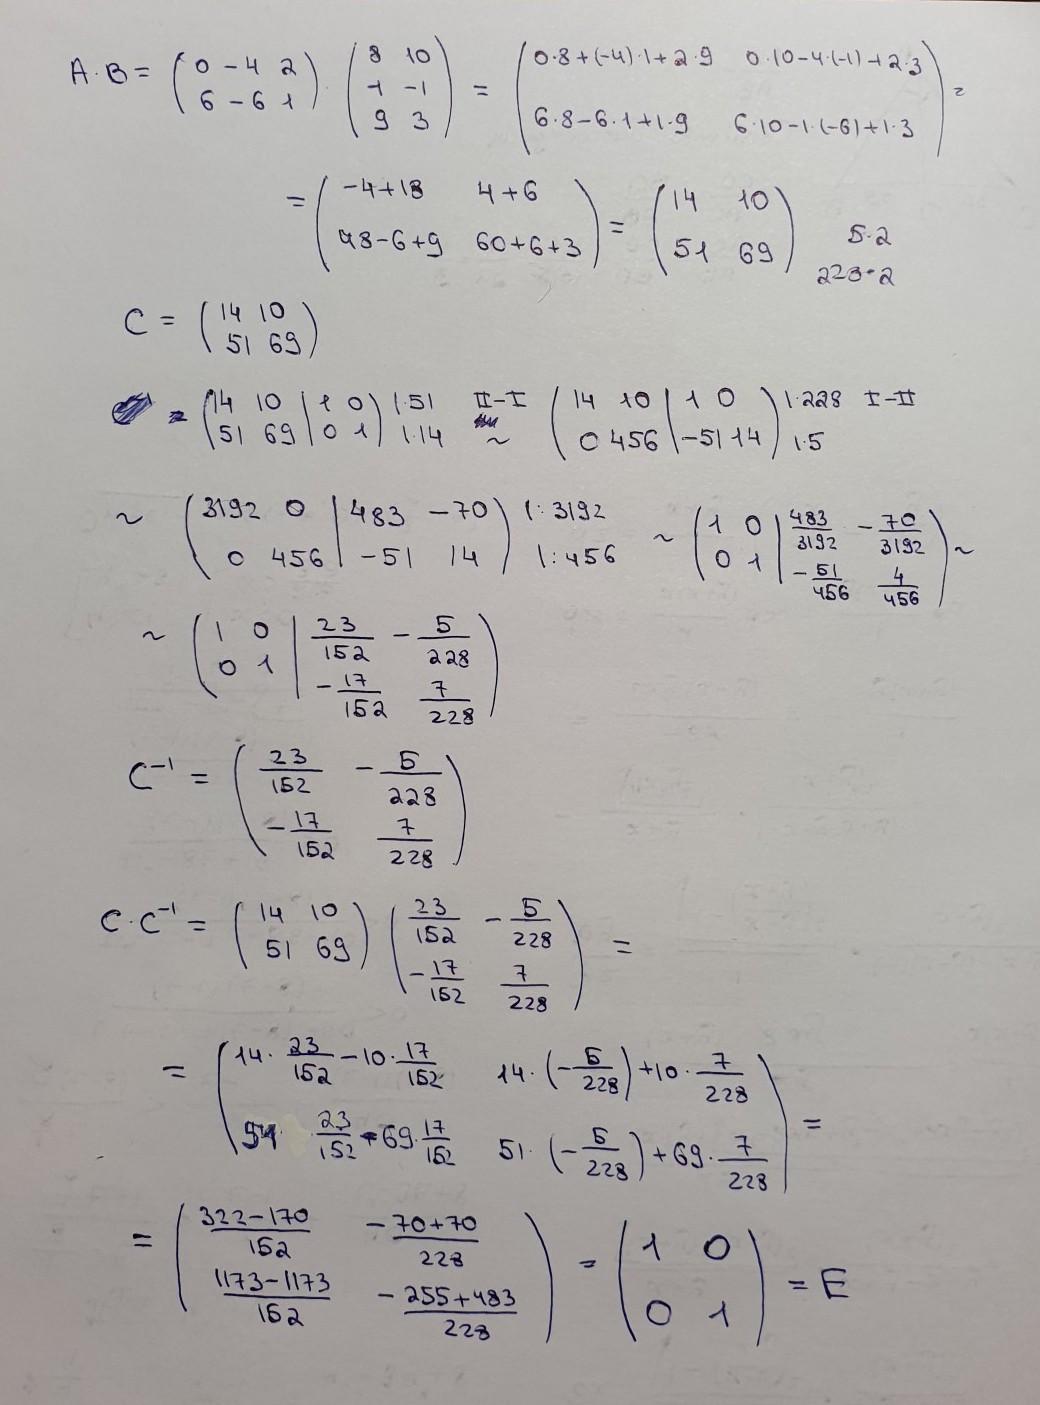 A·B = (0 -4 2 / 6 -6 1) · (8 10 / 1 -1 / 9 3) = (0·8+(-4)·1+2·9 0·10-4·(-1)+2·3 / 6·8-6·1+1·9 6·10-1·(-6)+1·3) =
= (-4+18 4+6 / 48-6+9 60+6+3) = (14 10 / 51 69) 5·2
228·2
C = (14 10 / 51 69)
= (14 10 | 1 0 / 51 69 | 0 1) |·51 |·14 II-I ~ (14 10 | 1 0 / 0 456 | -51 14) |·228 |·5 I-II
~ (3192 0 | 483 -70 / 0 456 | -51 14) |:3192 |:456 ~ (1 0 | 483/3192 -70/3192 / 0 1 | -51/456 4/456) ~
~ (1 0 | 23/152 -5/228 / 0 1 | -17/152 7/228)
C⁻¹ = (23/152 -5/228 / -17/152 7/228)
C·C⁻¹ = (14 10 / 51 69) (23/152 -5/228 / -17/152 7/228) =
= (14·23/152-10·17/152 14·(-5/228)+10·7/228 / 51 23/152-69·17/152 51·(-5/228)+69·7/228) =
= (322-170/152 -70+70/228 / 1173-1173/152 -255+483/228) = (1 0 / 0 1) = E